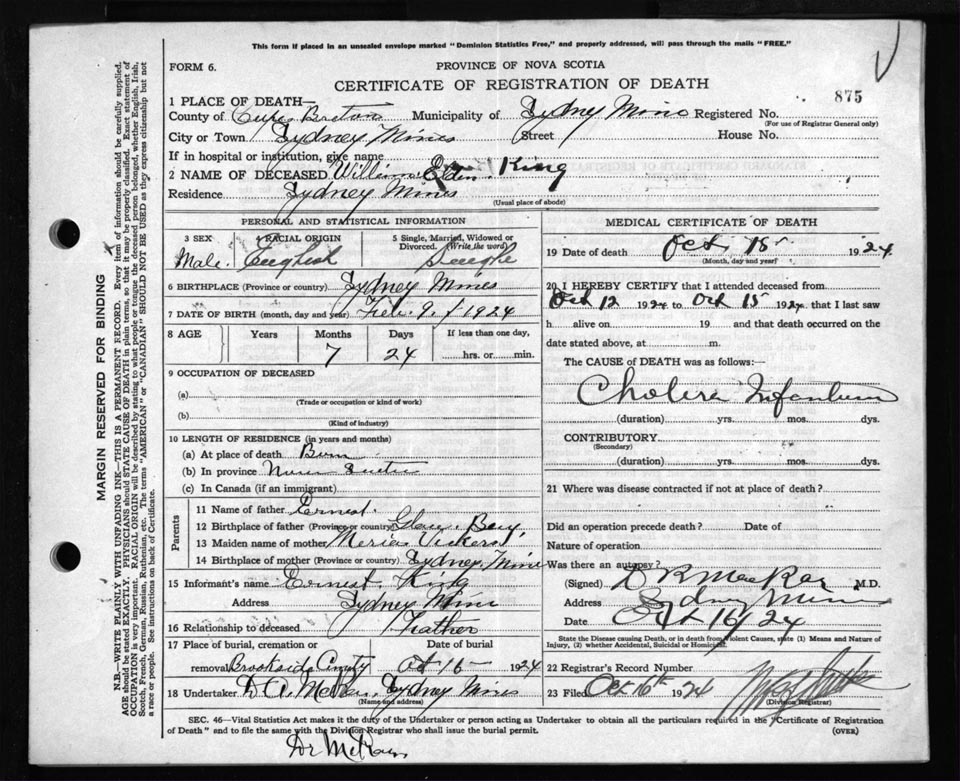 This form if placed in an unsealed envelope marked "Dominion Statistics Free," and properly addressed, will pass through the mails "FREE."
FORM 6.
PROVINCE OF NOVA SCOTIA
CERTIFICATE OF REGISTRATION OF DEATH
875
1 PLACE OF DEATH—
County of Cape Breton Municipality of Sydney Mines Registered No.
(For use of Registrar General only)
City or Town Sydney Mines Street House No.
If in hospital or institution, give name
2 NAME OF DECEASED William Elden King
Residence Sydney Mines
(Usual place of abode)
PERSONAL AND STATISTICAL INFORMATION
3 SEX 4 RACIAL ORIGIN 5 Single, Married, Widowed or Divorced. (Write the word)
Male. English Single
6 BIRTHPLACE (Province or country) Sydney Mines
7 DATE OF BIRTH (month, day and year) Feb. 9. 1924
8 AGE Years Months Days If less than one day,
7 24 hrs. or min.
9 OCCUPATION OF DECEASED
(a)
(Trade or occupation or kind of work)
(b)
(Kind of industry)
10 LENGTH OF RESIDENCE (in years and months)
(a) At place of death Born
(b) In province Nova Scotia
(c) In Canada (if an immigrant)
Parents
11 Name of father Ernest.
12 Birthplace of father (Province or country) Glace Bay
13 Maiden name of mother Vickers
14 Birthplace of mother (Province or country) Sydney Mines
15 Informant's name Ernest King
Address Sydney Mines
16 Relationship to deceased Father
17 Place of burial, cremation or Date of burial
removal Brookside Oct 16 1924
18 Undertaker Sydney Mines
(Name and address)
MEDICAL CERTIFICATE OF DEATH
19 Date of death Oct 15 1924.
(Month, day and year)
20 I HEREBY CERTIFY that I attended deceased from
Oct 12 1924 to Oct 15 1924, that I last saw
h alive on 19 and that death occurred on the
date stated above, at m.
The CAUSE of DEATH was as follows:—
Cholera Infantum
(duration) yrs. mos. dys.
CONTRIBUTORY
(Secondary)
(duration) yrs. mos. dys.
21 Where was disease contracted if not at place of death?
Did an operation precede death? Date of
Nature of operation
Was there an autopsy?
(Signed) M.D.
Address Sydney Mines
Date Oct 16/24
State the Disease causing Death, or in death from Violent Causes, state (1) Means and Nature of Injury, (2) whether Accidental, Suicidal or Homicidal.
22 Registrar's Record Number
23 Filed Oct 16th 1924
(Division Registrar)
SEC. 46—Vital Statistics Act makes it the duty of the Undertaker or person acting as Undertaker to obtain all the particulars required in the "Certificate of Registration
of Death" and to file the same with the Division Registrar who shall issue the burial permit. (OVER)
MARGIN RESERVED FOR BINDING
N.B.—WRITE PLAINLY WITH UNFADING INK—THIS IS A PERMANENT RECORD. Every item of information should be carefully supplied.
AGE should be stated EXACTLY. PHYSICIANS should STATE CAUSE OF DEATH in plain terms, so that it may be properly classified. Exact statement of
OCCUPATION is very important. RACIAL ORIGIN will be described by stating to what people or tongue the deceased person belonged, whether English, Irish,
Scotch, French, German, Russian, Ruthenian, etc. The terms "AMERICAN" or "CANADIAN" SHOULD NOT BE USED as they express citizenship but not
a race or people. See instructions on back of Certificate.